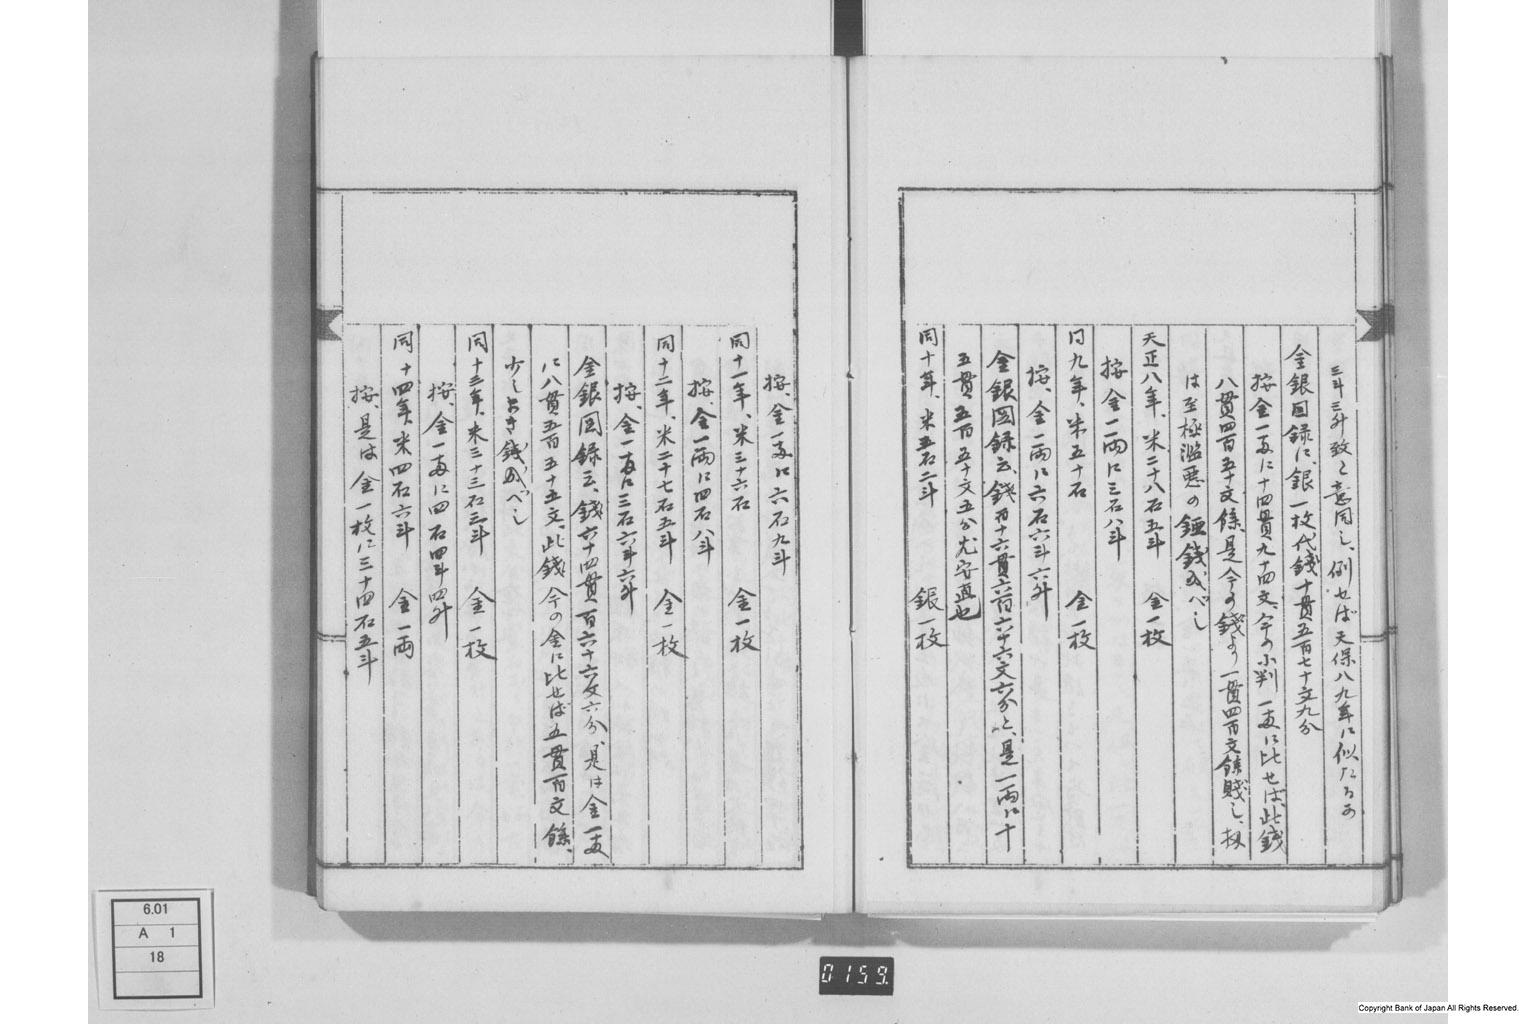 三斗三升致と意同し、例せば天保八九年に似たるか
金銀図録に、銀一枚代銭十貫五百七十文九分
按、金一両に十四貫九十四文、今の小判一両に比せば、此銭
八貫四百五十文餘是今の銭より一貫四百文餘賎し、扨
は至極濫悪の銭なるべし
天正八年、米二十八石五斗　金一枚
按、金一両に三石八斗
同九年、米五十石　金一枚
按、金一両に六石六斗六升
金銀図録云、銭百十六貫六百六十六文六分と、是一両に十
五貫五百五十文五分尤安直也
同十年、米五石二斗　銀一枚
按、金一両に六石九斗
同十一年、米三十六石　金一枚
按、金一両に四石八斗
同十二年、米二十七石五斗　金一枚
按、金一両に三石六斗六升
金銀図録云、銭六十四貫百六十六文六分、是は金一両
に八貫五百五十五文、此銭今の金に比せば五貫百文餘、
少しよき銭なるべし
同十三年、米三十三石三斗　金一枚
按、金一両に四石四斗四升
同十四年、米四石六斗　金一両
按、是は金一枚に三十四石五斗
6.01
A 1
18
0159
Copyright Bank of Japan All Rights Reserved.